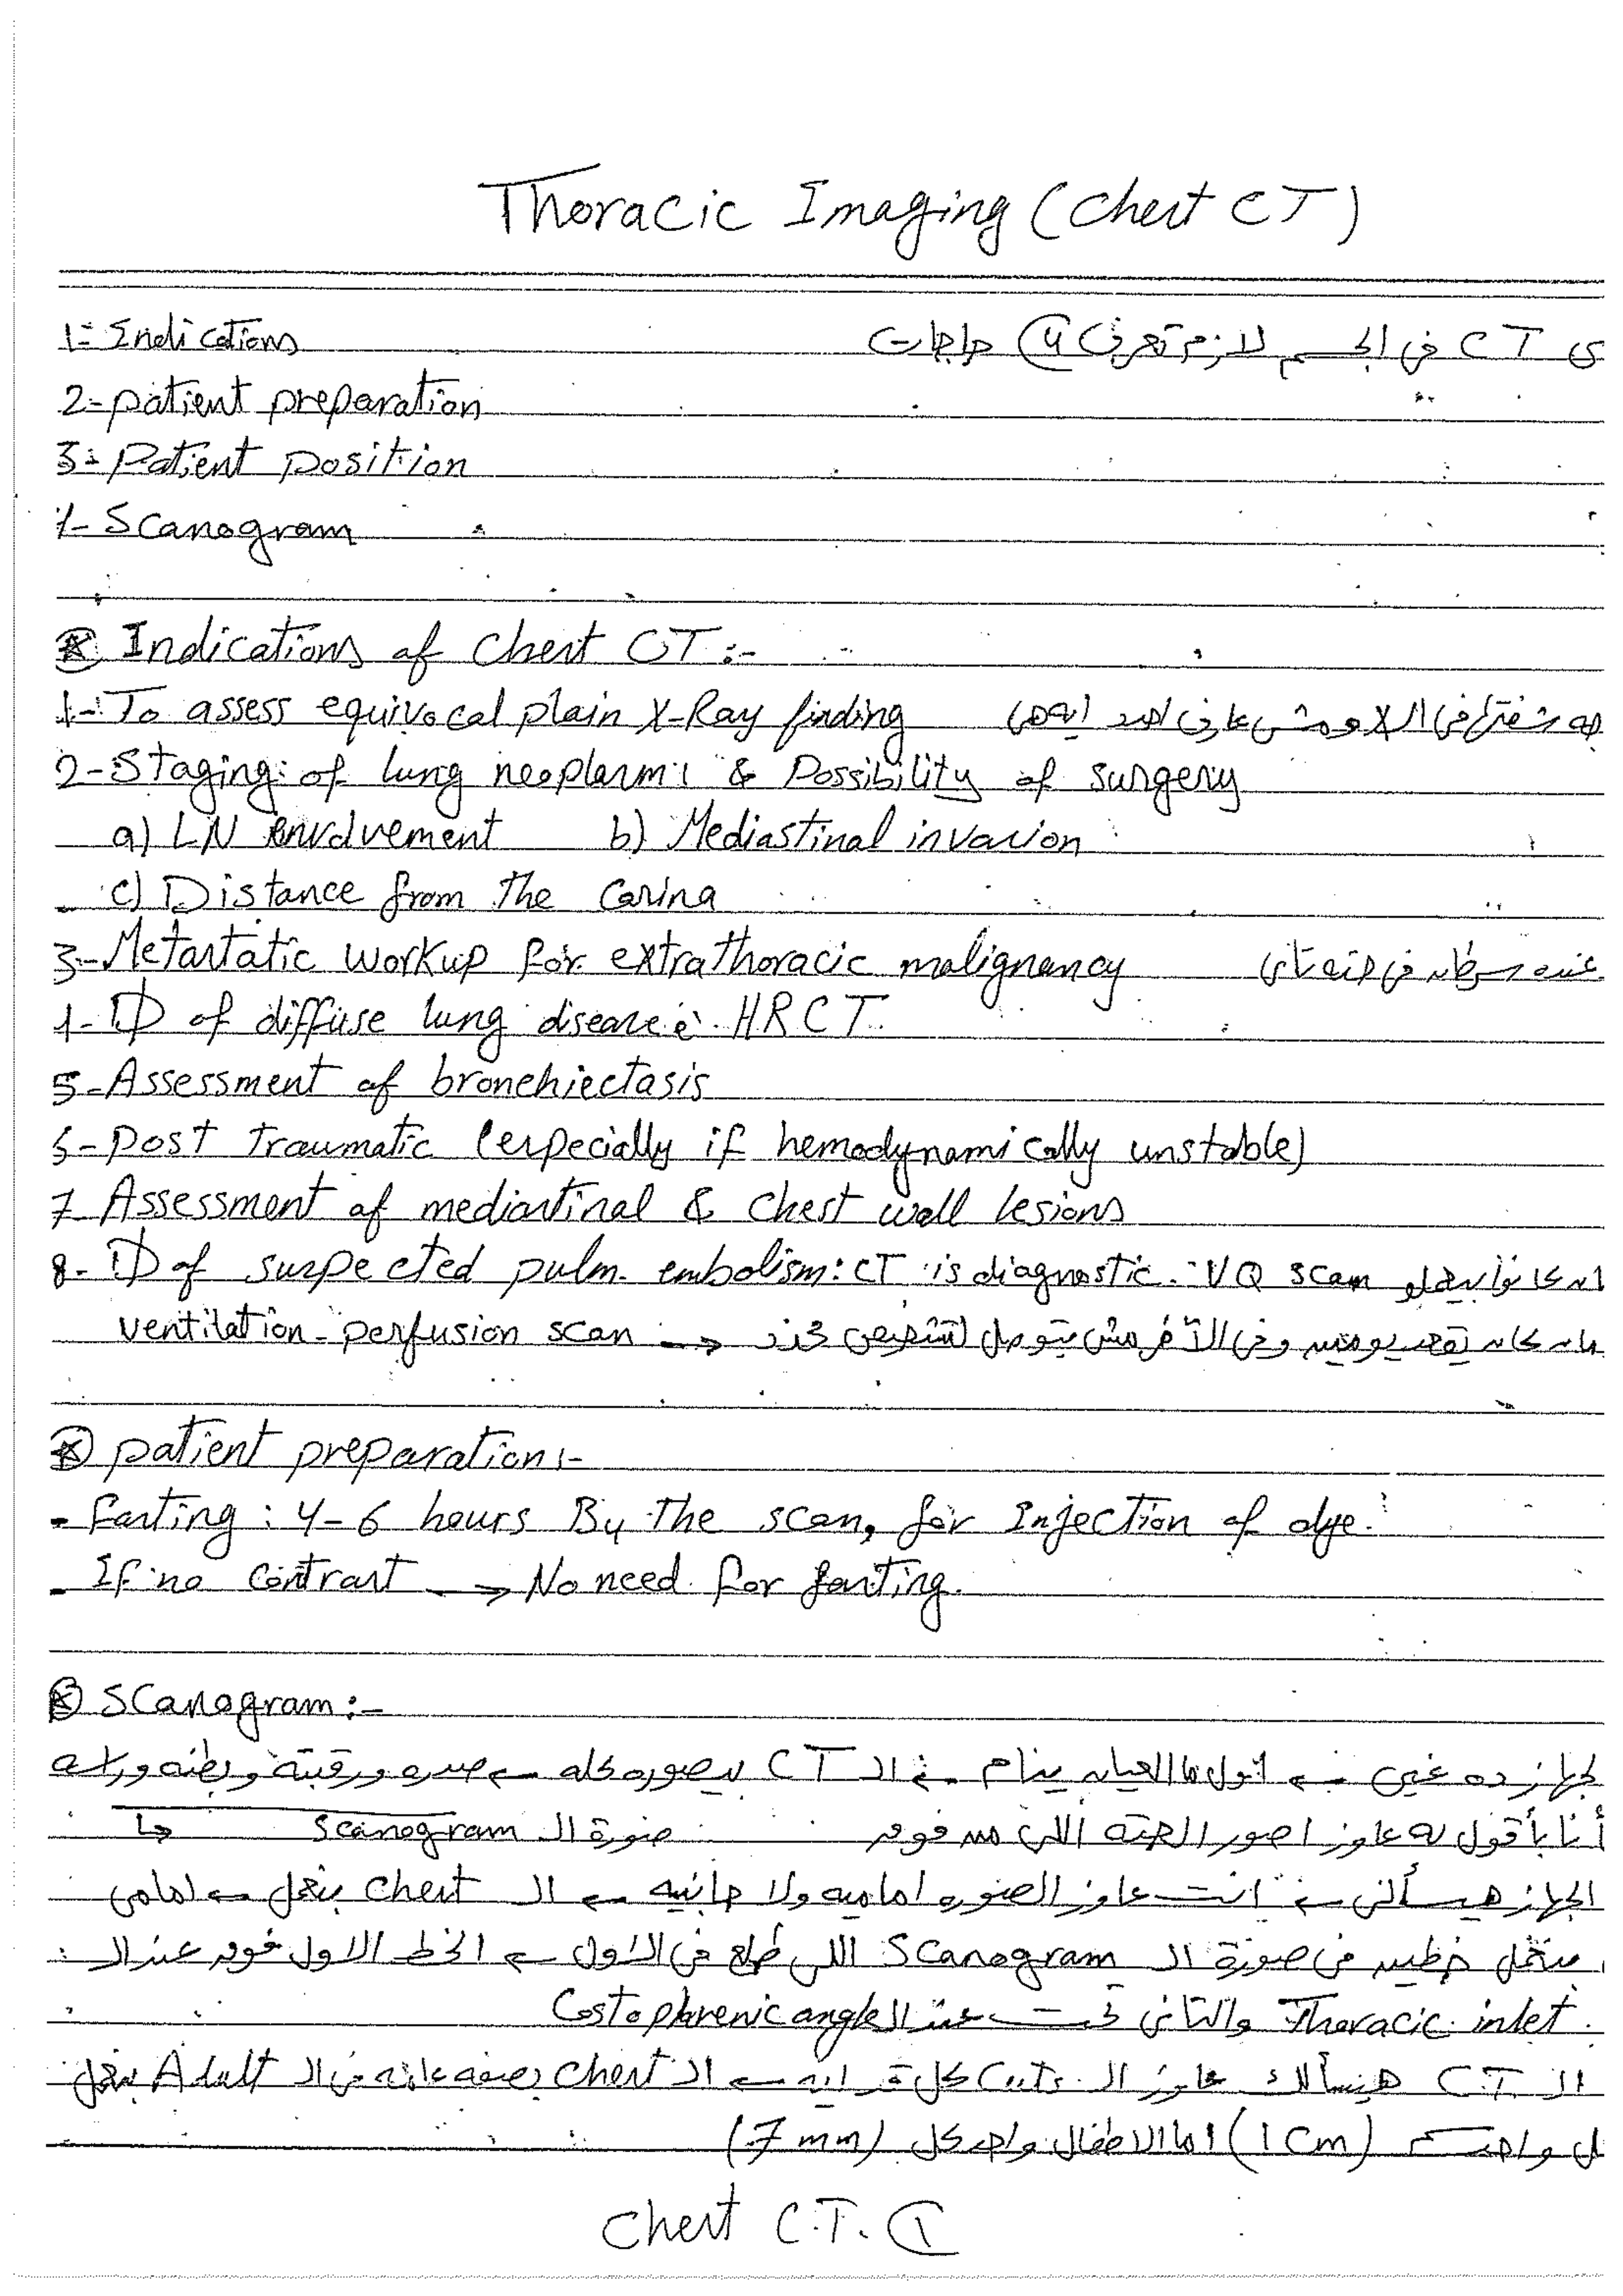 Thoracic Imaging (Chest CT)
1- Indications
ى CT فى الجسم لازم تعرف 4 حاجات
2- patient preparation
3- Patient position
4- Scanogram
* Indications of Chest CT :-
1- To assess equivocal plain X-Ray finding شفتها فى الـ X ومش عارف احدد ايه هى
2- Staging of lung neoplasm & Possibility of surgery
a) LN involvement b) Mediastinal invasion
c) Distance from the Carina
3- Metastatic workup for extrathoracic malignancy عنده سرطان فى حته تانى
4- D of diffuse lung disease è HRCT.
5- Assessment of bronchiectasis
6- Post Traumatic (especially if hemodynamically unstable)
7- Assessment of mediastinal & Chest wall lesions
8- D of suspected pulm. embolism: CT is diagnostic. VQ scan كانوا بيعملو
ventilation-perfusion scan → كان يقعد يومين وفى الآخر مش بتوصل لتشخيص
* patient preparation:-
- Fasting: 4-6 hours By the scan, for Injection of dye.
- If no contrast → No need for fasting.
* Scanogram :-
جهاز ده غبى ← اول ما العيان ينام فى الـ CT يصوره كله ← صدره ورقبته وبطنه وراسه
أنا بأقول له عاوز اصور الحته اللى من فوق صورة الـ Scanogram
الجهاز هيسألنى ← انت عاوز الصوره اماميه ولا جانبيه ← الـ Chest بنعمل ← امامى
بنعمل خطين فى صورة الـ Scanogram اللى طلع فى الاول ← الخط الاول فوق عند الـ
Thoracic inlet والتانى تحت عند الـ Costophrenic angle
الـ C.T. هيسألك عاوز الـ Cuts كل قد ايه ← الـ Chest بصفه عامه فى الـ Adult بنعمل
كل واحد (1 Cm) اما الاطفال واحد كل (7 mm)
Chest C.T. 1